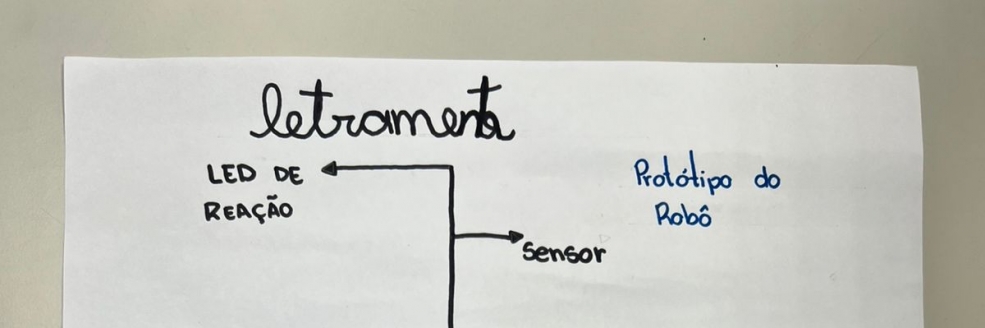 letramento
LED DE
REAÇÃO
Sensor
Protótipo do
Robô